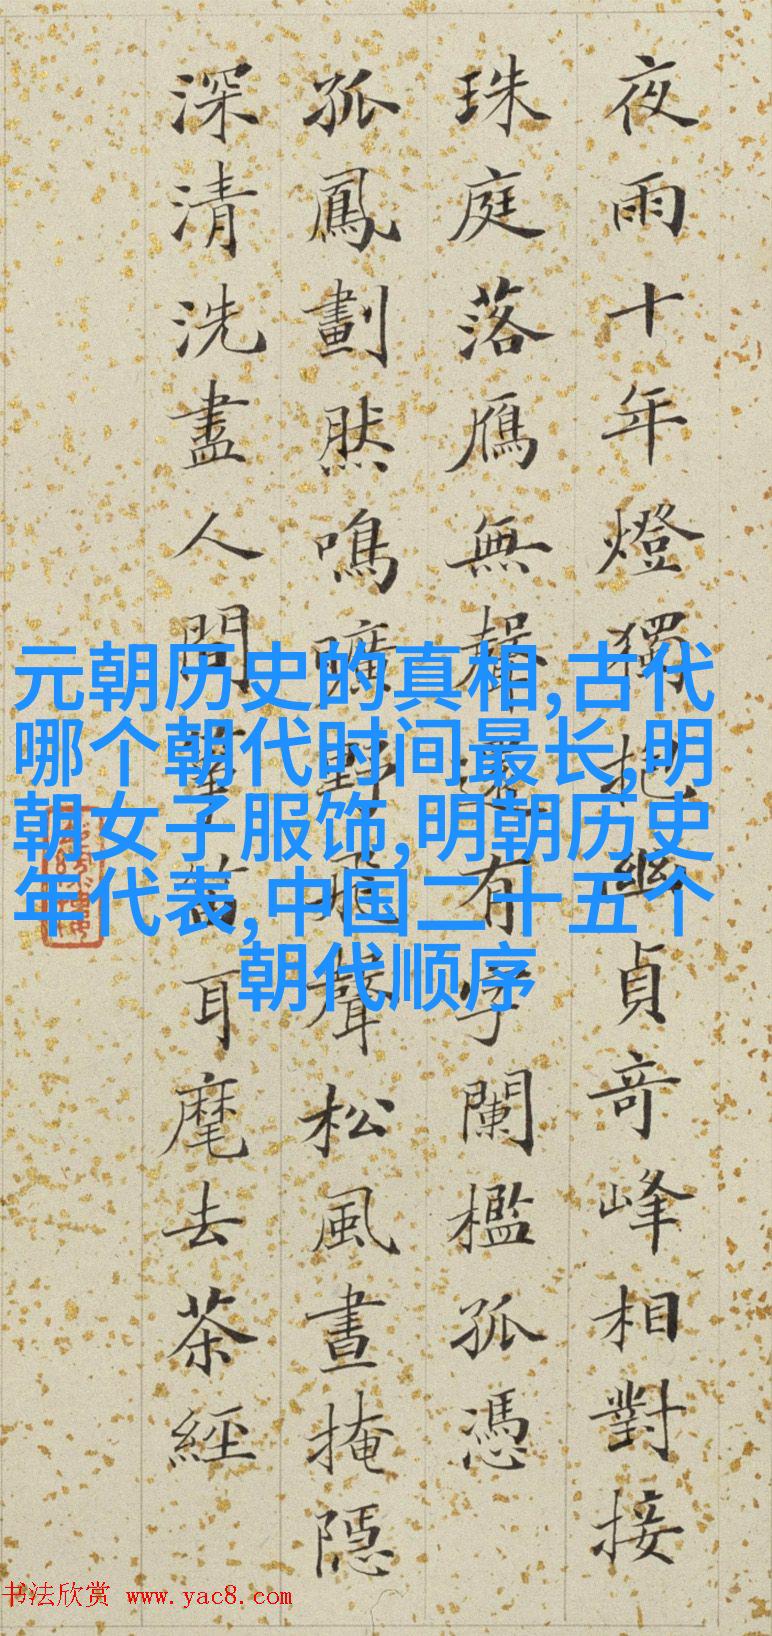 夜雨十年燈獨把幽貞奇峰相對接
珠庭落鴈無聲有字闌檻孤憑
孤鳳劃然鳴曠野飛聲松風晝掩隱
深清洗盡人間箏笛耳麾去茶經
元朝历史的真相,古代
哪个朝代时间最长,明
朝女子服饰,明朝历史
年代表,中国二十五个
朝代顺序
书法欣赏 www.yac8.com